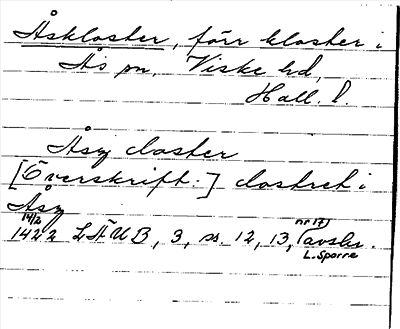 Åskloster, förr kloster i
Ås sn, Viske hd,
Hall. l.
Åsz closter
[Överskrift:] clostret i
Åsz
14/2 nr 17)
1422 LÄUB, 3, ss. 12, 13, Tavsler.
L. Sparre